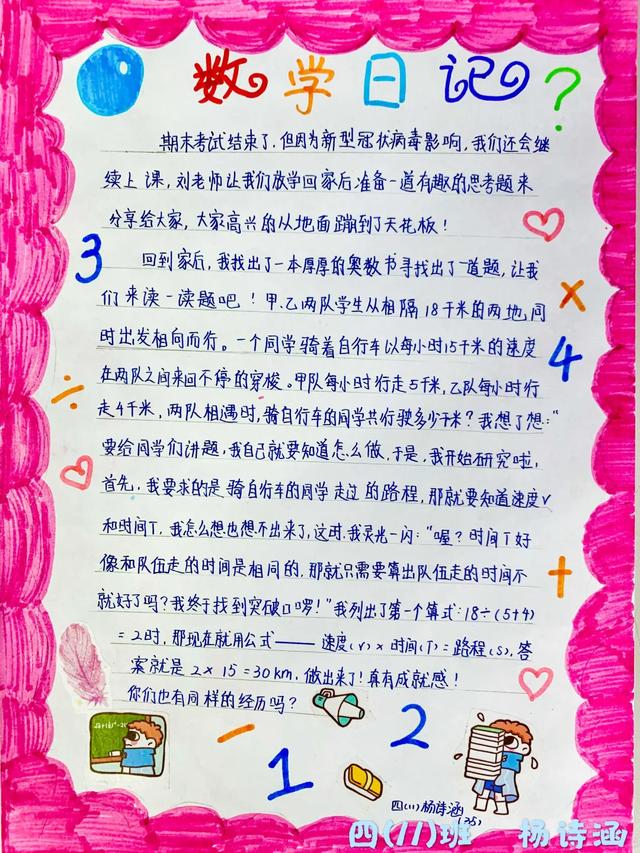 数学日记?
期末考试结束了.但因为新型冠状病毒影响,我们还会继
续上课,刘老师让我们放学回家后准备一道有趣的思考题来
分享给大家,大家高兴的从地面蹦到了天花板!
3
回到家后,我找出了一本厚厚的奥数书寻找出了一道题,让我
们来读一读题吧!甲.乙两队学生从相隔18千米的两地,同
×
时出发相向而行。一个同学骑着自行车以每小时15千米的速度
4
在两队之间来回不停的穿梭。甲队每小时行走5千米,乙队每小时行
÷
走4千米,两队相遇时,骑自行车的同学共行驶多少千米?我想了想:“
要给同学们讲题,我自己就要知道怎么做,于是,我开始研究啦,
首先,我要求的是骑自行车的同学走过的路程,那就要知道速度v
和时间T,我怎么想也想不出来了,这时.我灵光一闪:“喔?时间T好
像和队伍走的时间是相同的,那就只需要算出队伍走的时间不
+
就好了吗?我终于找到突破口啰!”我列出了第一个算式:18÷(5+4)
=2时,那现在就用公式——速度(v)×时间(T)=路程(S),答
案就是2×15=30km,做出来了!真有成就感!
你们也有同样的经历吗?
2
-
1
四(11)杨诗涵
(35)
四(11)班 杨诗涵